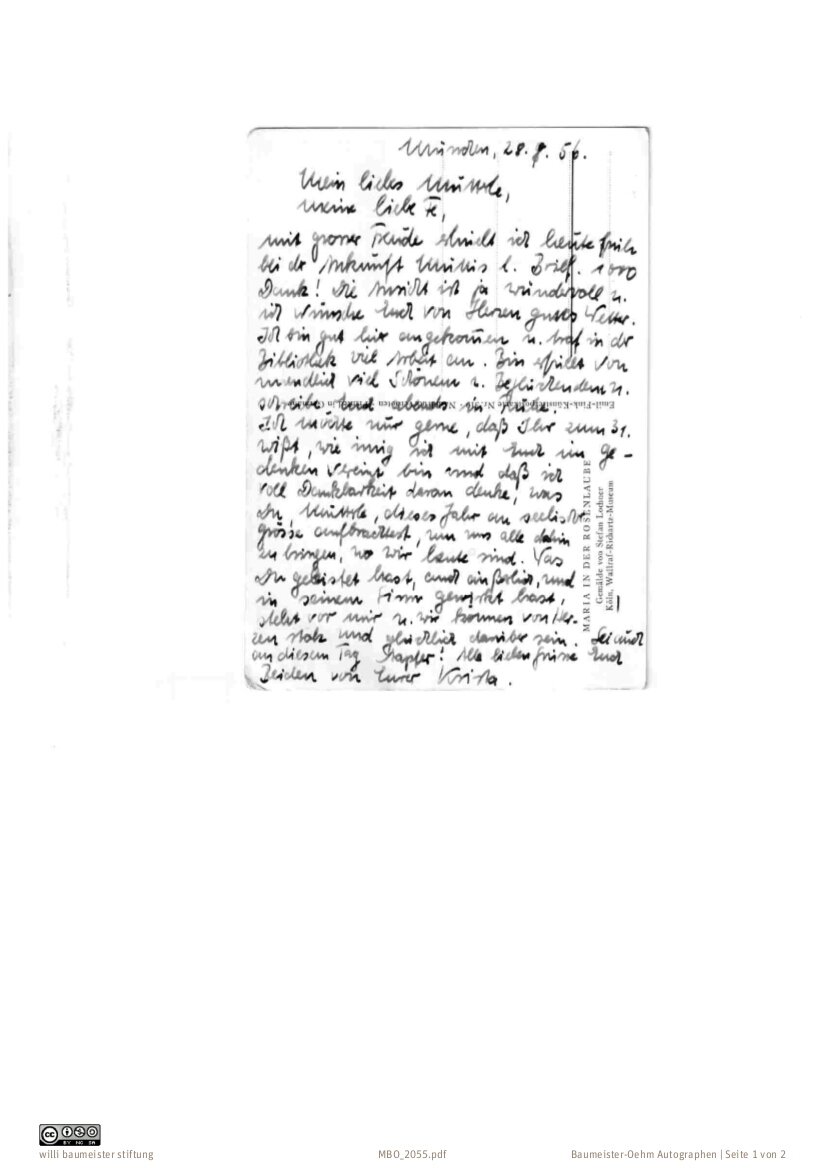 München, 28. 8. 56.
Mein liebes Mutterle,
meine liebe Fe,
mit grosser Freude erhielt ich heute früh
bei der Ankunft Muttis l. Brief. 1000
Dank! Die Ansicht ist ja wundervoll u.
ich wünsche Euch von Herzen gutes Wetter.
Ich bin gut hier angekommen u. traf in der
Bibliothek viel Arbeit an. Bin erfüllt von
unendlich viel Schönem u. Beglückendem u.
schreibe Euch abends in Ruhe.
Ich möchte nur gerne, daß Ihr zum 31.
wißt, wie innig ich mit Euch im Ge-
denken vereint bin und daß ich
voll Dankbarkeit daran denke, was
Du, Mutterle, dieses Jahr an seelischer
Grösse aufbrachtest, um uns alle dahin
zu bringen, wo wir heute sind. Was
Du geleistet hast, auch äußerlich, und
in seinem Sinn gewirkt hast,
steht vor mir u. wir können von Her-
zen stolz und glücklich darüber sein. Sei auch
an diesem Tag tapfer! Alle lieben Grüsse Euch
Beiden von Eurer Krista.
MARIA IN DER ROSENLAUBE
Gemälde von Stefan Lochner
Köln, Wallraf-Richartz-Museum
CC BY NC SA
willi baumeister stiftung
MBO_2055.pdf
Baumeister-Oehm Autographen | Seite 1 von 2